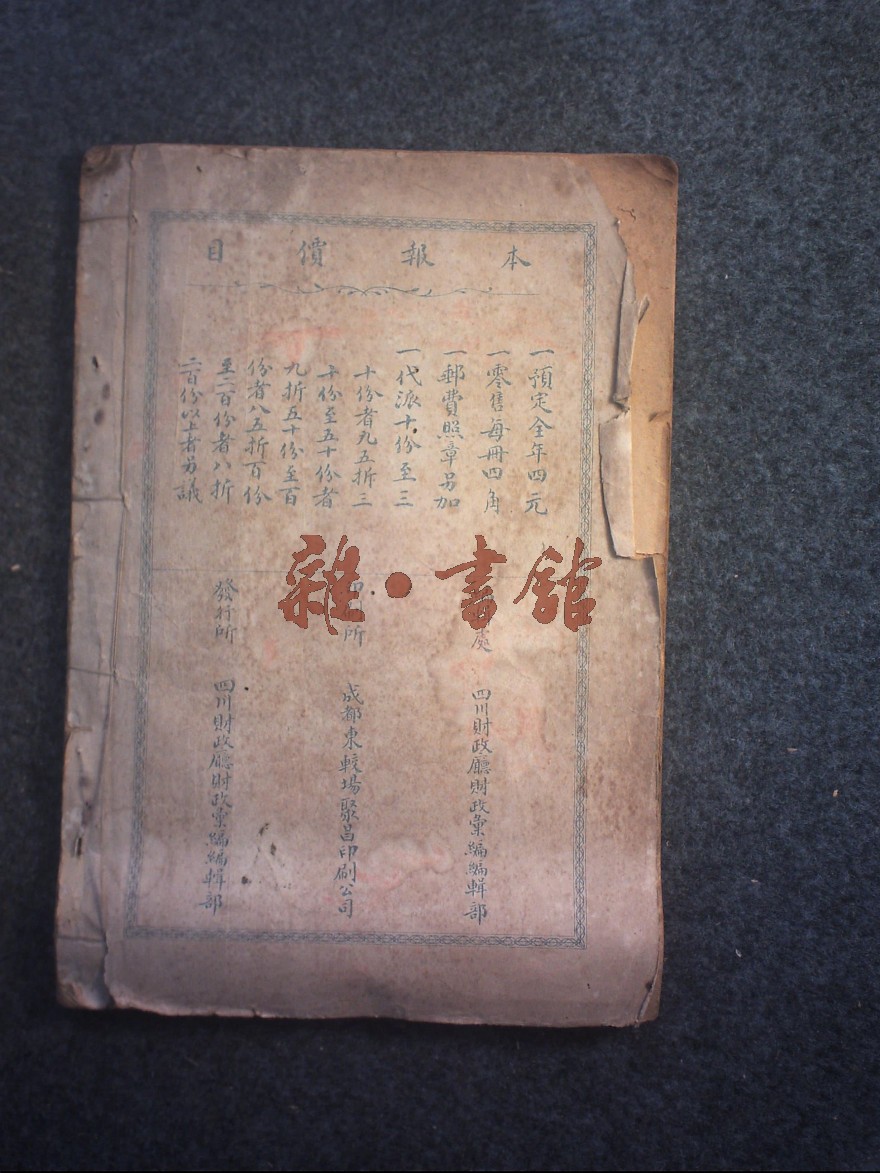 本報價目
一預定全年四元
一零售每冊四角
一郵費照章另加
一代派十份至三
十份者九五折三
十份至五十份者
九折五十份至百
份者八五折百份
至二百份者八折
二百份以上者另議
處
四川財政廳財政彙編編輯部
所
成都東較場聚昌印刷公司
發行所
四川財政廳財政彙編編輯部
雜·書館